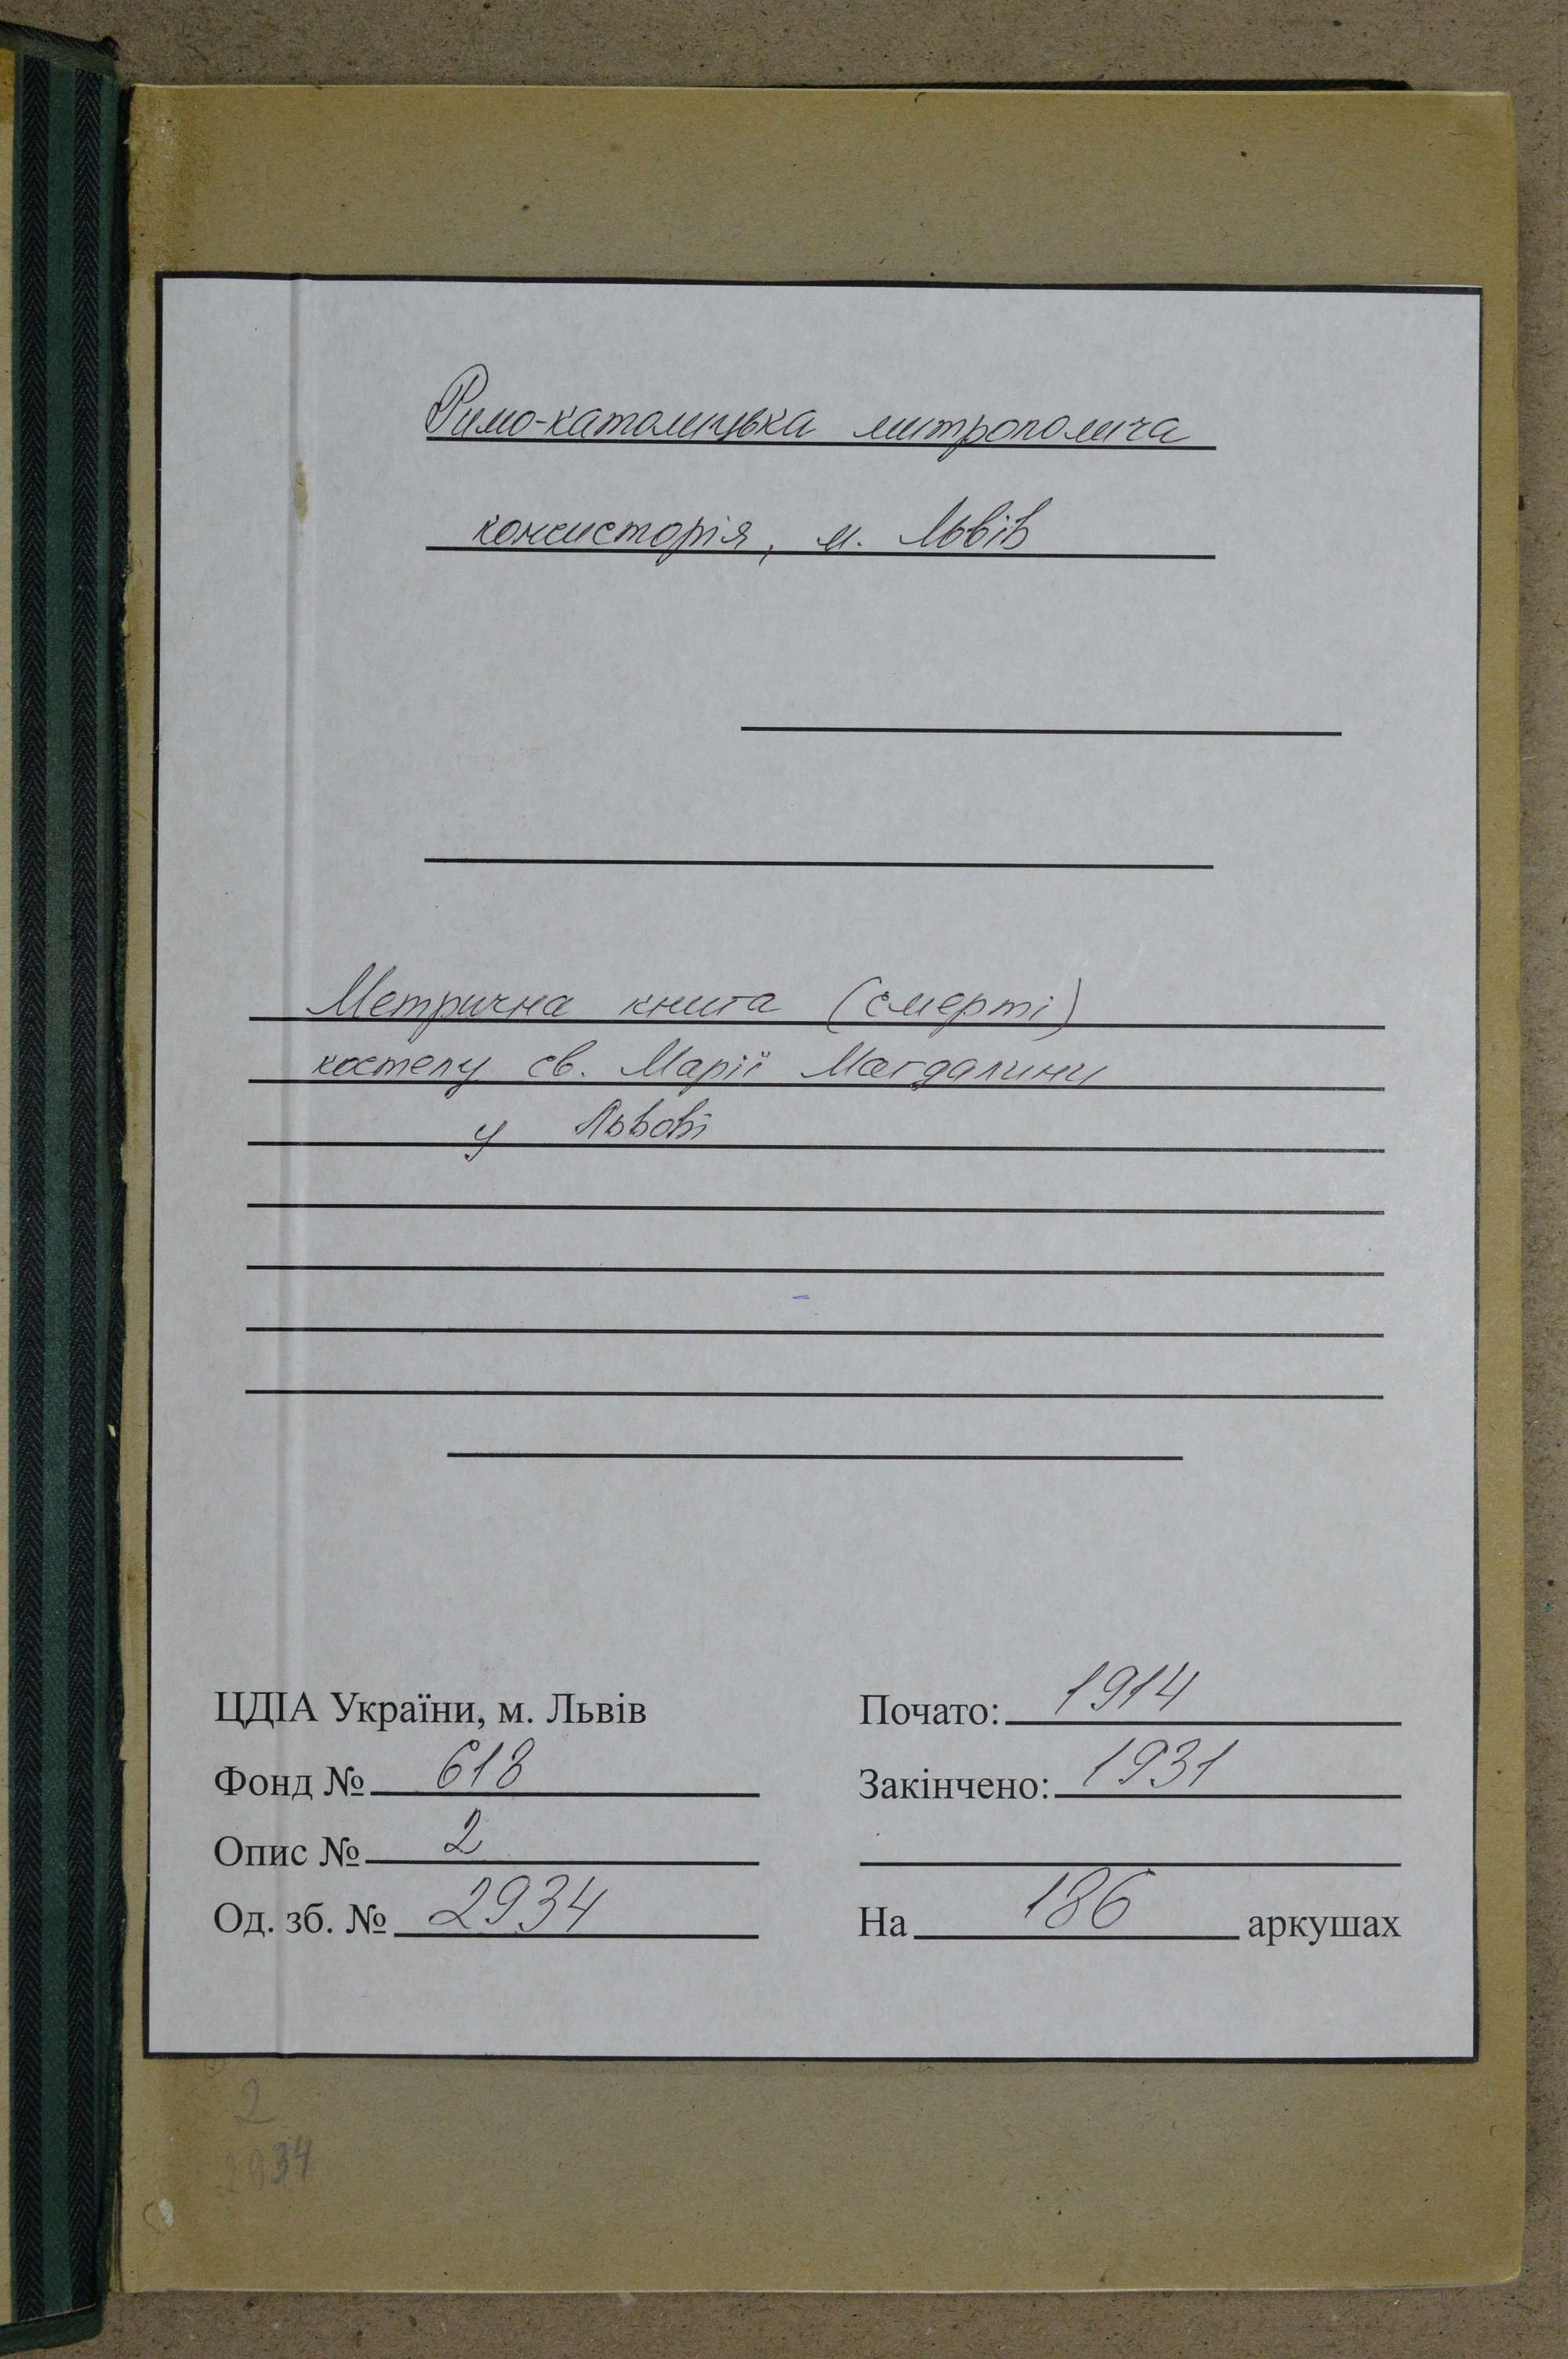 Римо-католицька митрополича
консисторія, м. Львів
Метрична книга (смерті)
костелу св. Марії Магдалини
у Львові
ЦДІА України, м. Львів
Фонд № 618
Опис № 2
Од. зб. № 2934
Почато: 1914
Закінчено: 1931
На 186 аркушах
2
2934